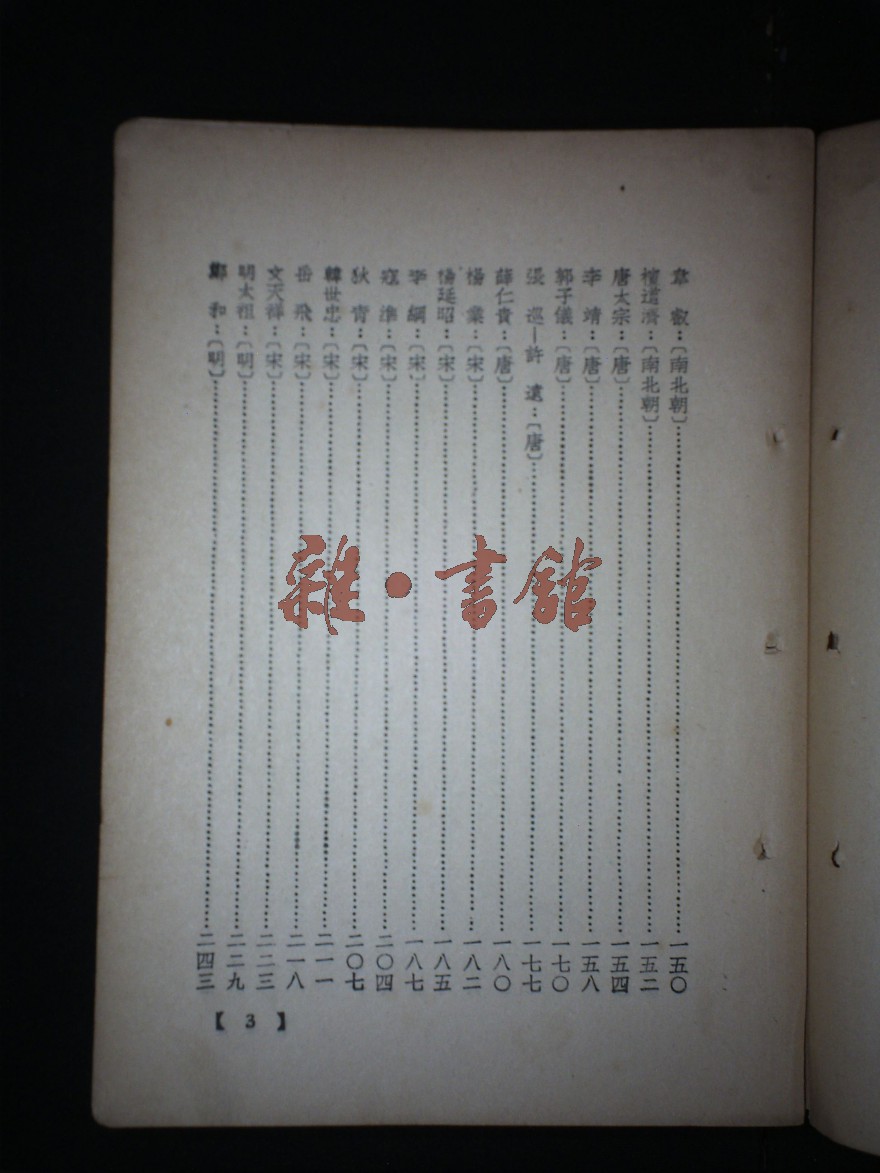 韋叡：〔南北朝〕……一五〇
檀道濟：〔南北朝〕……一五二
唐太宗：〔唐〕……一五四
李靖：〔唐〕……一五八
郭子儀：〔唐〕……一七〇
張巡—許遠：〔唐〕……一七七
薛仁貴：〔唐〕……一八〇
楊業：〔宋〕……一八二
楊延昭：〔宋〕……一八五
李綱：〔宋〕……一八七
寇準：〔宋〕……二〇四
狄青：〔宋〕……二〇七
韓世忠：〔宋〕……二一一
岳飛：〔宋〕……二一八
文天祥：〔宋〕……二二三
明太祖：〔明〕……二二九
鄭和：〔明〕……二四三
【3】
雜・書館